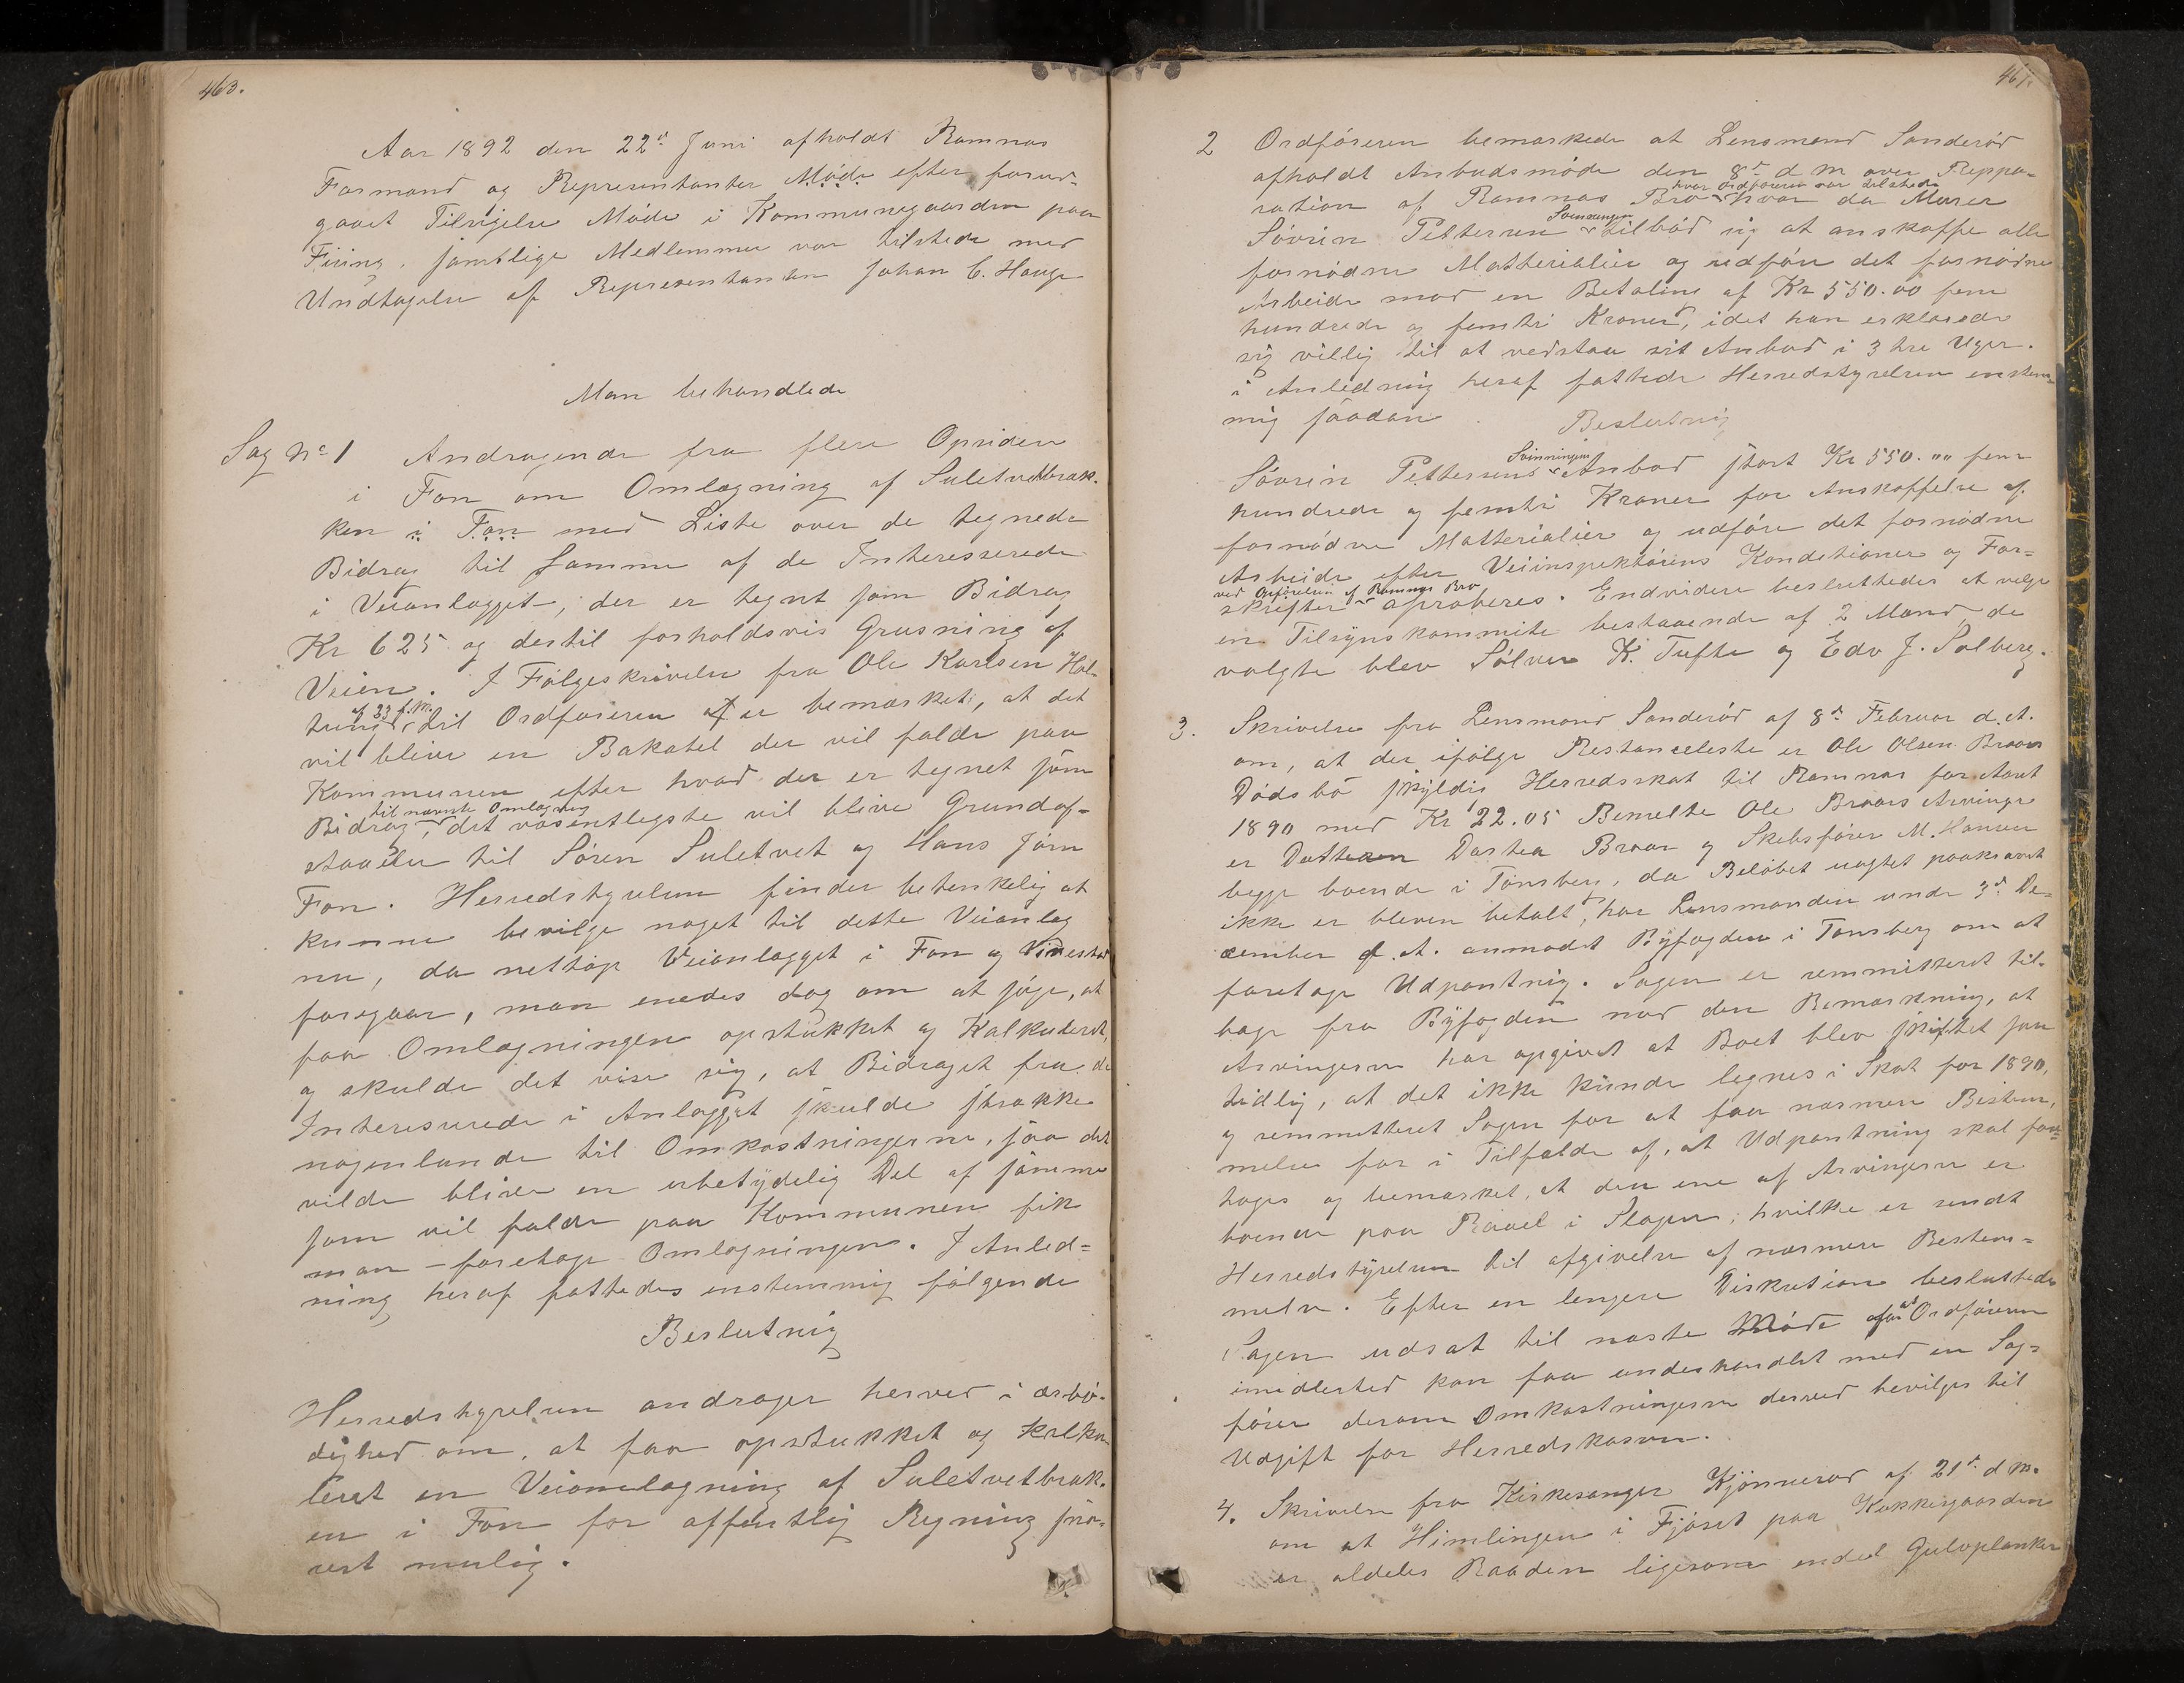 463.
Aar 1892 den 22d Juni afholdt Ramnæs
Formand og Representanter Møde efter forud-
gaaet Tilsigelse Møde i Kommunegaarden paa
Fiing. samtlige Medlemmer var tilstede med
Undtagelse af Representanten Johan C. Hauge
Man behandlede
Sag No 1 Andragende fra flere Opsidere
i Fon om Omlægning af Suletvetbrak-
ken i Fon med Liste over de tegnede
Bidrag til Samme af de Interesserede
i Veianlægget, der er tegnt som Bidrag
Kr 625 og dertil forholdsvis Grusning af
Veien. I Følgeskrivelse fra Ole Karlsen Hol-
tung af 23 f.M. til Ordføreren er bemærket, at det
vil blive en Bakatel der vil falde paa
Kommunen efter hvad der er tegnet som
Bidrag til nævnte Omlægning, det væsentligste vil blive Grundaf-
staaelse til Søren Suletvet og Hans Jørn
Fon. Herredstyrelsen finder betenkelig at
kunne bevilge noget til dette Veianlæg
nu, da nettop Veianlægget i Fon og Vivestad
foregaar, man enedes dog om at søge, at
faa Omlægningen opstukket og Kalkuleret,
og skulde det vise sig, at Bidraget fra de
Interesserede i Anlægget skulde strække
nogenlunde til Omkostningerne, saa det
vilde blive en ubetydelig Del af samme
som vil falde paa Kommunen fik
man foretage Omlægningen. I Anled-
ning heraf fattedes enstemmig følgende
Beslutnig
Herredstyrelsen andrager herved i ærbø-
dighed om, at faa opstukket og kalku-
leret en Veiomlægning af Suletvetbrak-
en i Fon for offentlig Regning sna-
rest mulig.
464.
2 Ordføreren bemærkede at Lensmand Sanderød
afholdt Anbudsmøde den 8de d M over Reppa-
ration af Ramnæs Bro hvor Ordføreren var tilstede hvor da Murer
Søvrin Pettersen Svinningen tilbød sig at anskaffe alle
fornødne Matterialier og udføre det fornødne
Arbeide mod en Betaling af Kr 550.00 fem
hundrede og femti Kroner, idet han erklærede
sig villig til at vedstaa sit Anbud i 3 tre Uger.
i Anledning heraf fattede Herredstyrelsen enstem-
mig saadan Beslutnig
Søvrin Pettersens Svinningen Anbud stort Kr 550.00 fem
hundrede og femti Kroner for Anskaffelse af
fornødne Matterialier og udføre det fornødne
Arbeide efter Veiinspektørens Kondetioner og For-
skrifter ved Opførelsen af Ramnæs Bro aproberes. Endvidere besluttedes at velge
en Tilsynskommite bestaaende af 2 Mand, de
valgte blev Sølver K. Tufte og Edv J. Solberg.
3. Skrivelse fra Lensmand Sanderød af 8de Februar d.A.
om, at der ifølge Restanceliste er Ole Olsen Braars
Dødsbo skyldig Herredsskat til Ramnæs for Aaret
1890 med Kr 22.05 Bemelte Ole Braars Arvinger
er Datteren Dortea Braar og Skibsfører M. Hansen
begge boende i Tønsberg, da Beløbet uagtet paakrævet
ikke er bleven betalt, har Lensmanden under 3d De-
cember f. A. anmodet Byfogden i Tønsberg om at
foretage Udpantnig. Sagen er remmitteret til-
bage fra Byfogden med den Bemærkning, at
Arvingerne har opgivet at Boet blev skiftet saa
tidlig, at det ikke kunde legnes i Skat for 1890,
og remmetteret Sagen for at faa nærmere Bestem-
melse for i Tilfælde af, at Udpantning skal fore-
tages og bemærket, at den ene af Arvingerne er
boende paa Raael i Slagen, hvilke er sendt
Herredstyrelsen til afgivelse af nærmere Bestem-
melse. Efter en lengere Diskution besluttede
Sagen udsat til næste Møde at Ordføreren
imidlertid kan faa underhandlet med en Sag-
fører derom Omkostningerne derved bevilges til
Udgift for Herredskassen.
4. Skrivelse fra Kirkesanger Kjønnerød af 21de d M.
om at Himlingen i Fjøset paa Klokkergaarden
er aldeles Raaden ligesom endel Gulvplanker